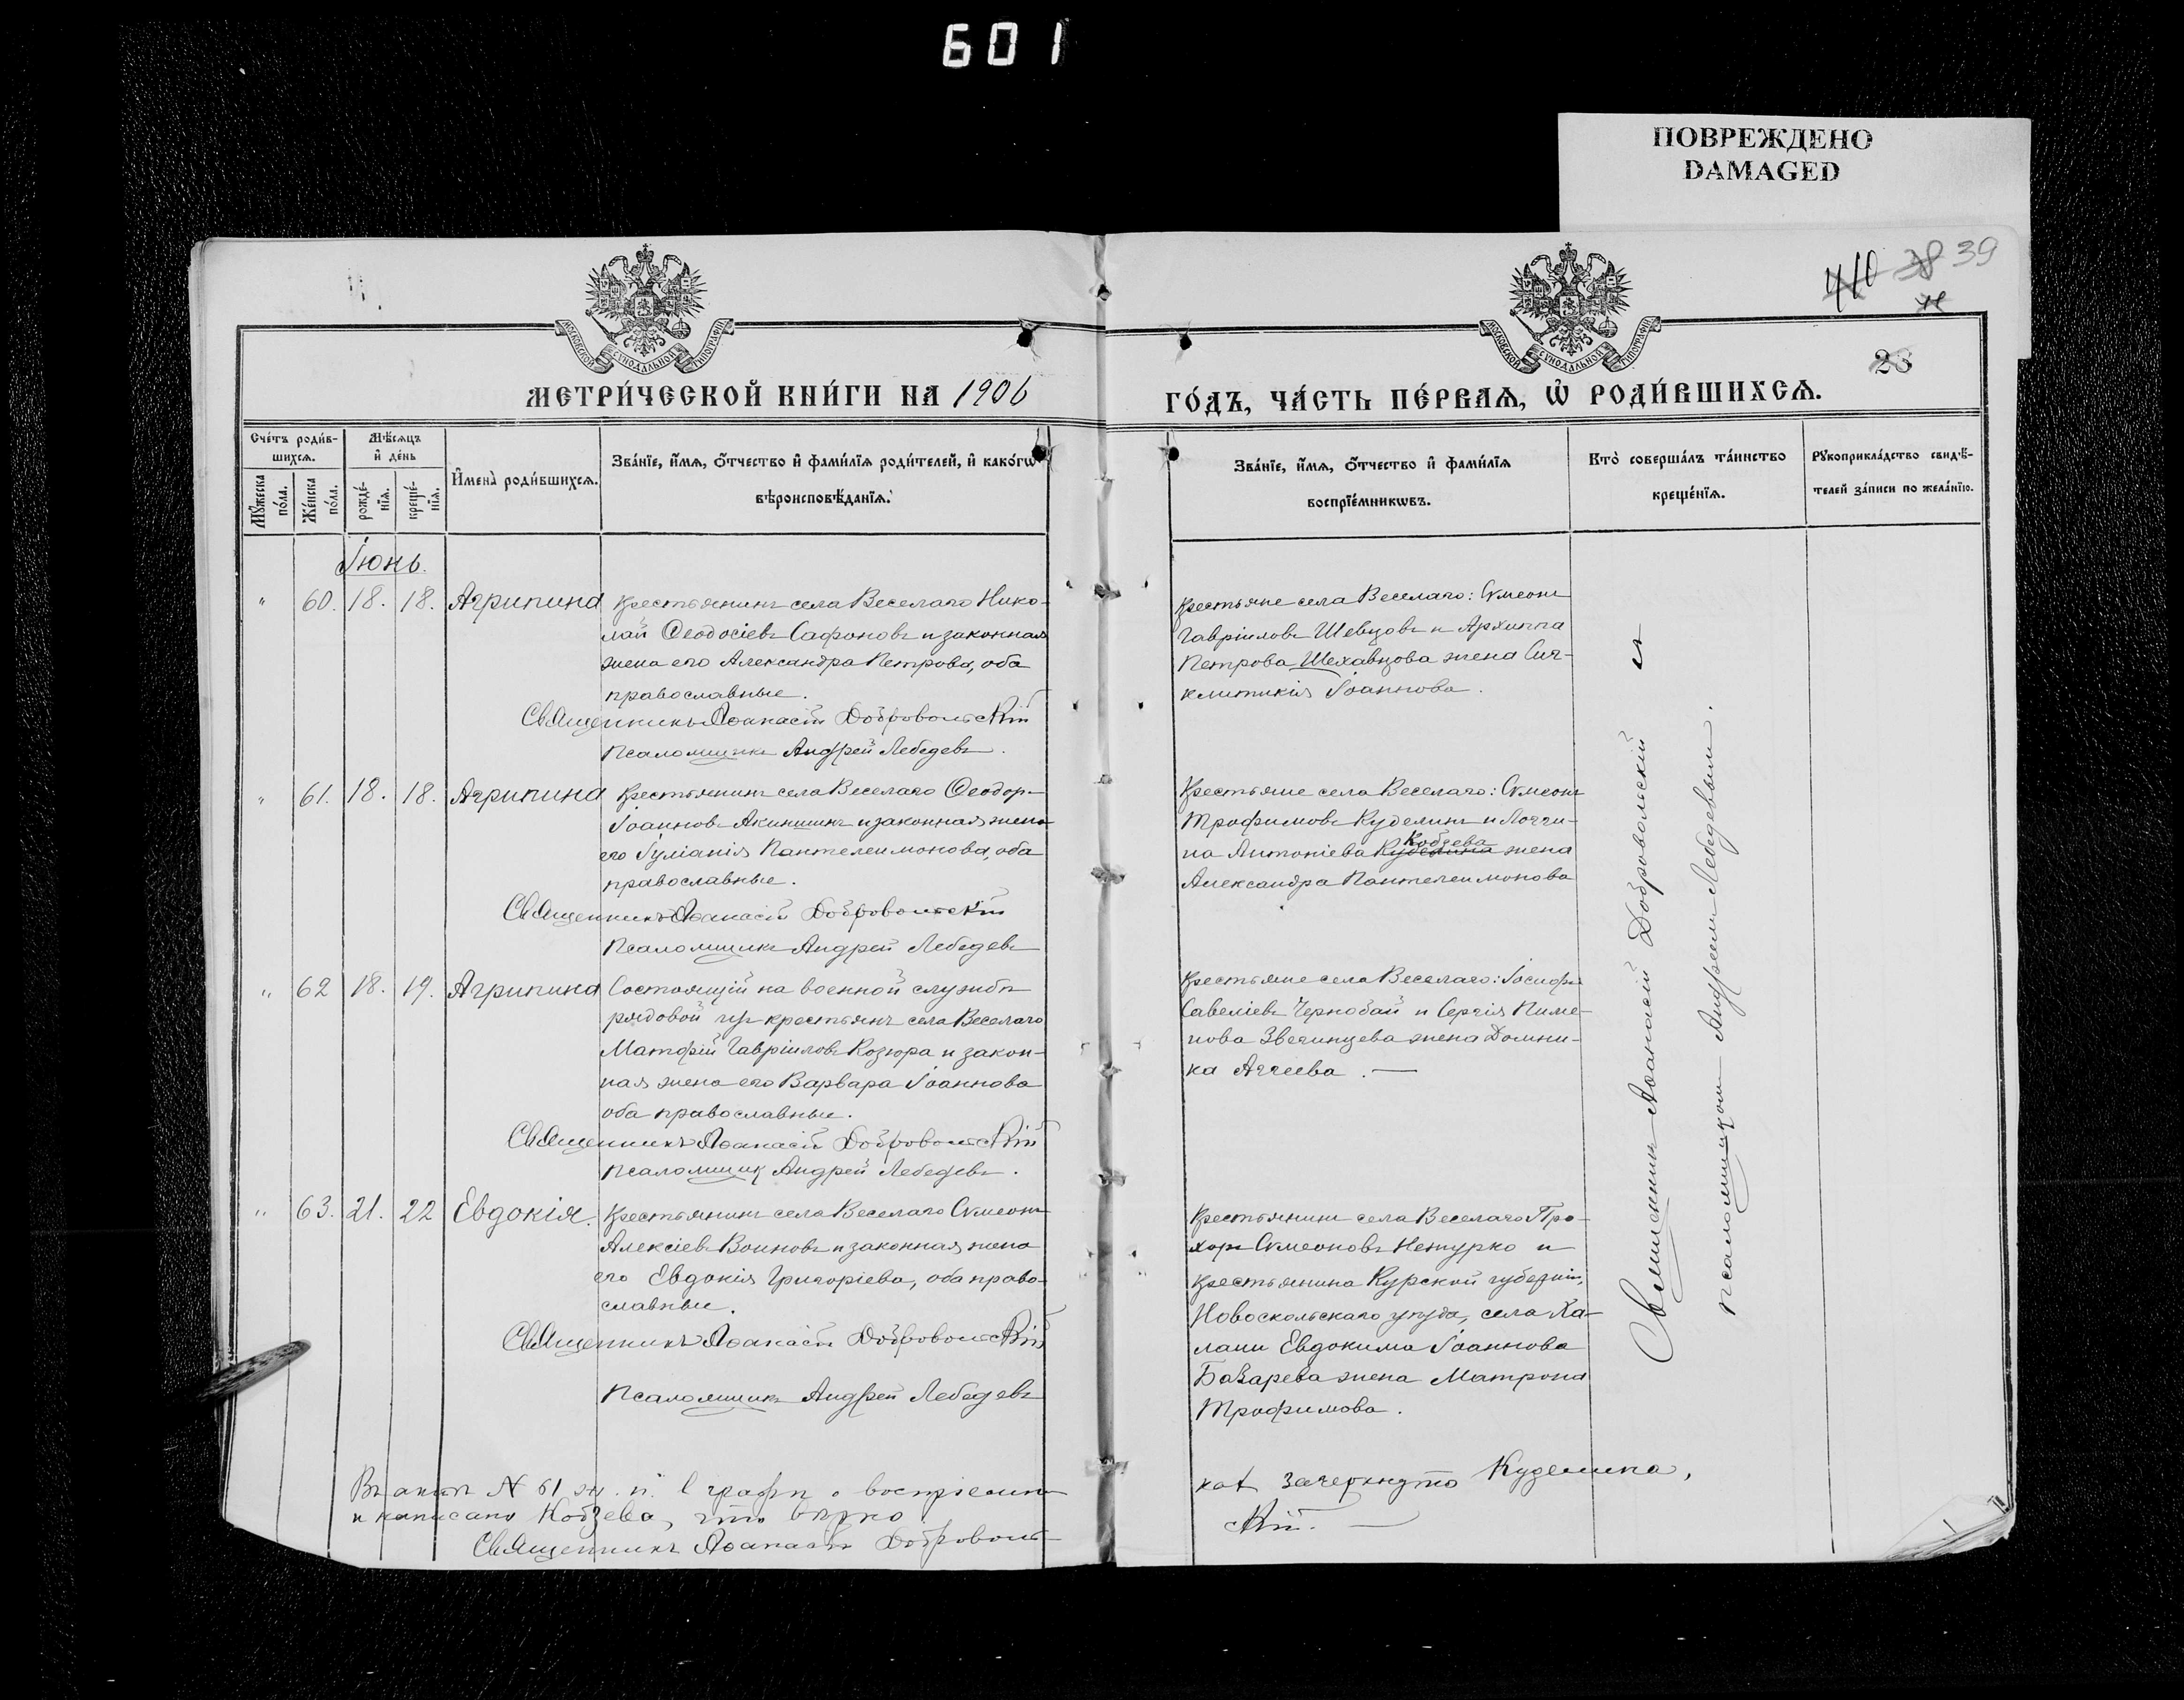 601
ПОВРЕЖДЕНО
DAMAGED
38 39
28
МОСКОВСКОЙ СѴНОДАЛЬНОЙ ТИПОГРАФІИ
МОСКОВСКОЙ СѴНОДАЛЬНОЙ ТИПОГРАФІИ
МЕТРИ́ЧЕСКОЙ КНИ́ГИ НА 1906
ГО́ДЪ, ЧА́СТЬ ПЕ́РВАѦ, Ѡ҆ РОДИ́ВШИХСѦ.
Сче́тъ роди́в-
шихсѧ.
Мꙋ́жеска по́ла.
Же́нска по́ла.
Мѣ́сѧцъ и҆ де́нь
рожде́-нїѧ.
креще́-нїѧ.
И҆мена̀ роди́вшихсѧ.
Зва́нїе, и҆́мѧ, ѻ҆́тчество и҆ фами́лїѧ роди́телей, и҆ како́гѡ
вѣроисповѣ́данїѧ.
Зва́нїе, и҆́мѧ, ѻ҆́тчество и҆ фами́лїѧ
воспрїе́мникѡвъ.
Кто̀ соверша́лъ та́инство
креще́нїѧ.
Рꙋкоприкла́дство свидѣ́-
телей за́писи по жела́нїю.
Іюнь.
" 60. 18. 18. Агрипина
Крестьянинъ села Веселаго Нико-
лай Ѳеодосіевъ Сафоновъ и законная
жена его Александра Петрова, оба
православные.
Священникъ Аѳанасій Добровольскій
Псаломщикъ Андрей Лебедевъ.
Крестьяне села Веселаго: Сѵмеонъ
Гавріиловъ Шевцовъ и Архиппа
Петрова Шехавцова жена Син-
клитикія Іоаннова.
" 61. 18. 18. Агрипина
Крестьянинъ села Веселаго Ѳеодоръ
Іоанновъ Акиншинъ и законная жена
его Іуліанія Пантелеимонова, оба
православные.
Священникъ Аѳанасій Добровольскій
Псаломщикъ Андрей Лебедевъ
Крестьяне села Веселаго: Сѵмеонъ
Трофимовъ Куделинъ и Логги-
Кобзева
на Антоніева Куделина жена
Александра Пантелеимонова
" 62 18. 19. Агрипина
Состоящій на военной службѣ
рядовой изъ крестьянъ села Веселаго
Матѳій Гавріиловъ Козюра и закон-
ная жена его Варвара Іоаннова
оба православные.
Священникъ Аѳанасій Добровольскій
Псаломщикъ Андрей Лебедевъ.
Крестьяне села Веселаго: Іосифъ
Савеліевъ Чернобай и Сергія Пиме-
нова Звегинцева жена Домни-
ка Аггеева.
" 63. 21. 22 Евдокія.
Крестьянинъ села Веселаго Сѵмеонъ
Алексіевъ Воиновъ и законная жена
его Евдокія Григоріева, оба право-
славные.
Священникъ Аѳанасій Добровольскій
Псаломщикъ Андрей Лебедевъ
Крестьянинъ села Веселаго Про-
хоръ Сѵмеоновъ Нежурко и
крестьянина Курской губерніи,
Новоскольскаго уѣзда, села Ха-
лани Евдокима Іоаннова
Базарева жена Матрона
Трофимова.
Священникъ Аѳанасій Добровольскій и
псаломщикомъ Андреемъ Лебедевымъ.
Въ актѣ № 61 ж. п. въ графѣ о воспріемни
ках зачеркнуто Куделина,
и написано Кобзева, что вѣрно
Священникъ Аѳанасій Доброволь-
скій.